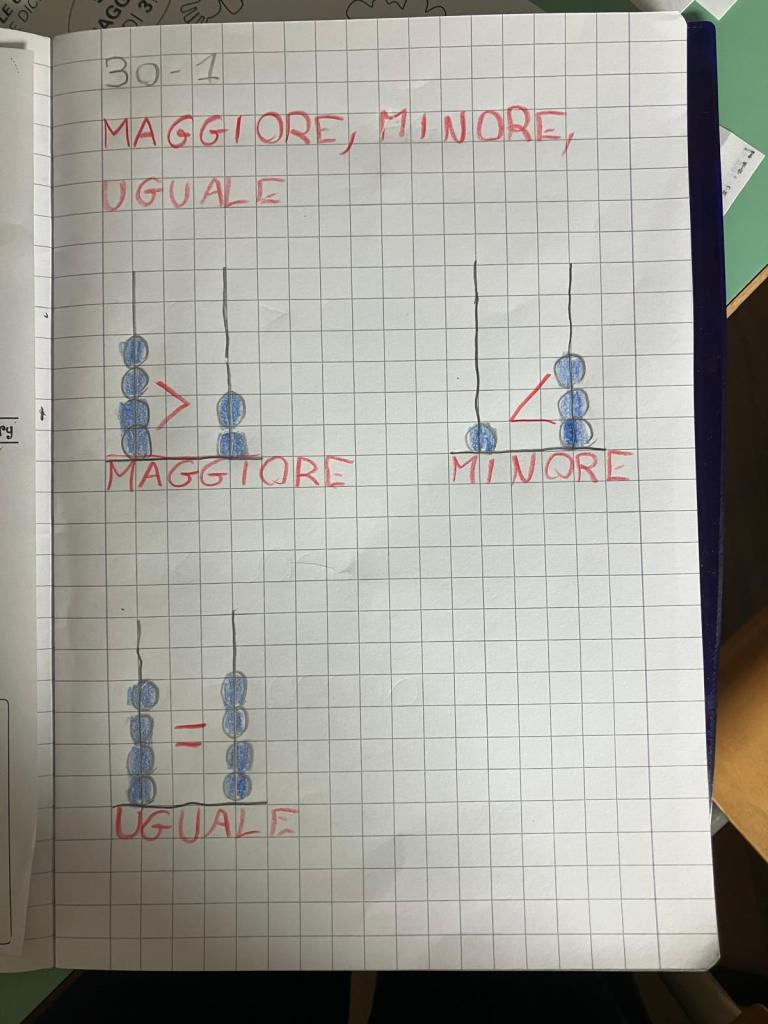 30-1
MAGGIORE, MINORE,
UGUALE
>
<
MAGGIORE
MINORE
=
UGUALE
ry